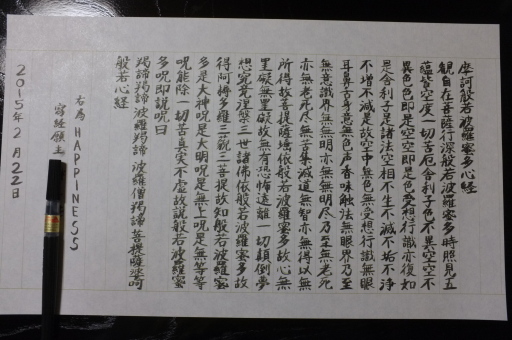 摩訶般若波羅蜜多心経
観自在菩薩行深般若波羅蜜多時照見五
蘊皆空度一切苦厄舎利子色不異空空不
異色色即是空空即是色受想行識亦復如
是舎利子是諸法空相不生不滅不垢不浄
不増不減是故空中無色無受想行識無眼
耳鼻舌身意無色声香味触法無眼界乃至
無意識界無無明亦無無明尽乃至無老死
亦無老死尽無苦集滅道無智亦無得以無
所得故菩提薩埵依般若波羅蜜多故心無
罣礙無罣礙故無有恐怖遠離一切顛倒夢
想究竟涅槃三世諸佛依般若波羅蜜多故
得阿耨多羅三藐三菩提故知般若波羅蜜
多是大神呪是大明呪是無上呪是無等等
呪能除一切苦真実不虚故説般若波羅蜜
多呪即説呪曰
羯諦羯諦波羅羯諦 波羅僧羯諦菩提薩婆訶
般若心経
右為HAPPINESS
写経願主
2015年2月22日